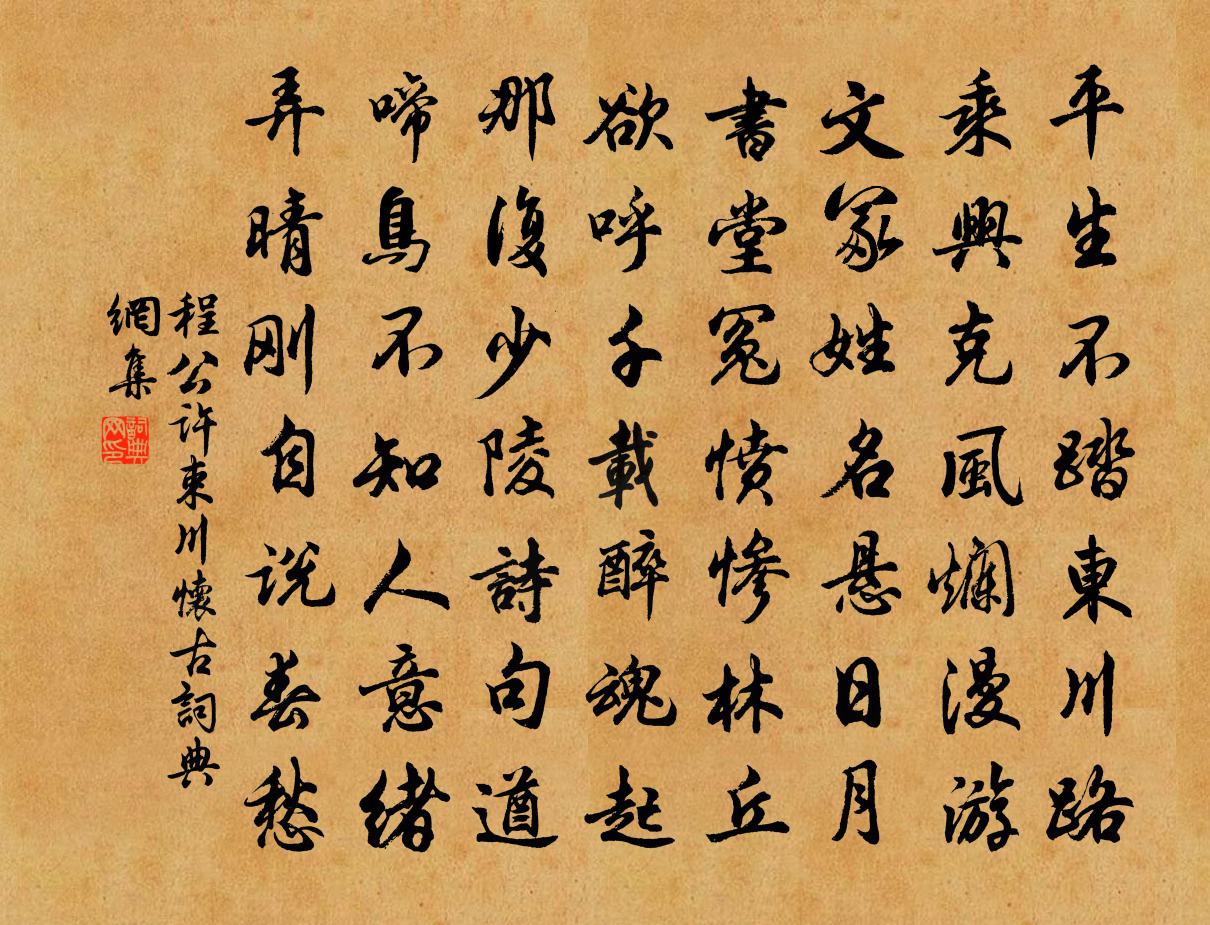 平生不踏東川路
乘興克風爛漫游
文冢姓名悬日月
書堂冤憤慘林丘
欲呼千載醉魂起
那復少陵詩句遒
啼鳥不知人意緒
弄晴刚自説春愁
程公許東川懷古詞典
網集
詞典
网印